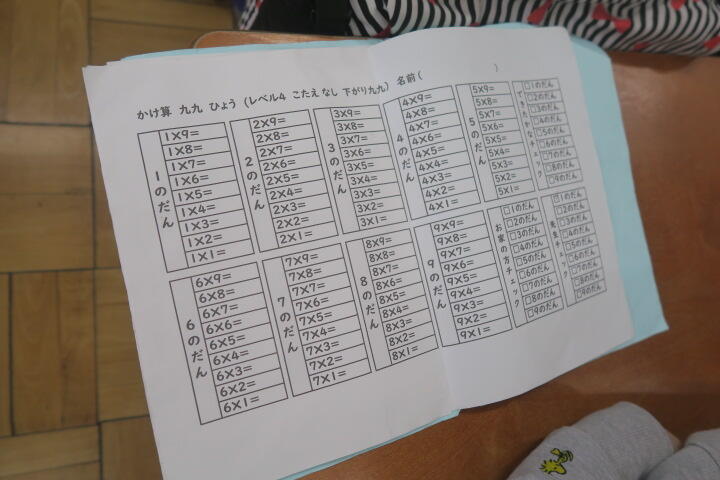 かけ算 九九 ひょう (レベル4 こたえ なし 下がり九九) 名前( )
1のだん
1×9=
1×8=
1×7=
1×6=
1×5=
1×4=
1×3=
1×2=
1×1=
2のだん
2×9=
2×8=
2×7=
2×6=
2×5=
2×4=
2×3=
2×2=
2×1=
3のだん
3×9=
3×8=
3×7=
3×6=
3×5=
3×4=
3×3=
3×2=
3×1=
4のだん
4×9=
4×8=
4×7=
4×6=
4×5=
4×4=
4×3=
4×2=
4×1=
5のだん
5×9=
5×8=
5×7=
5×6=
5×5=
5×4=
5×3=
5×2=
5×1=
できたかなチェック
□1のだん
□2のだん
□3のだん
□4のだん
□5のだん
□6のだん
□7のだん
□8のだん
□9のだん
6のだん
6×9=
6×8=
6×7=
6×6=
6×5=
6×4=
6×3=
6×2=
6×1=
7のだん
7×9=
7×8=
7×7=
7×6=
7×5=
7×4=
7×3=
7×2=
7×1=
8のだん
8×9=
8×8=
8×7=
8×6=
8×5=
8×4=
8×3=
8×2=
8×1=
9のだん
9×9=
9×8=
9×7=
9×6=
9×5=
9×4=
9×3=
9×2=
9×1=
お家の方チェック
□1のだん
□2のだん
□3のだん
□4のだん
□5のだん
□6のだん
□7のだん
□8のだん
□9のだん
先生チェック
□1のだん
□2のだん
□3のだん
□4のだん
□5のだん
□6のだん
□7のだん
□8のだん
□9のだん